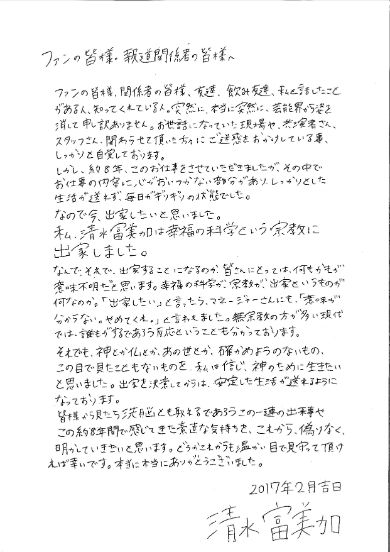 ファンの皆様、報道関係者の皆様へ
ファンの皆様、関係者の皆様、友達、飲み友達、私と話したこと
がある人、知ってくれている人。突然に、本当に突然に、芸能界から姿を
消して申し訳ありません。お世話になっていた現場や、共演者さん、
スタッフさん、関わらせて頂いた方々にご迷惑をおかけしている事、
しっかりと自覚しております。
しかし、約8年、このお仕事をさせていただきましたが、その中で
お仕事の内容に心がおいつかない部分があり、しっかりとした
生活が送れず、毎日がギリギリの状態でした。
なので今、出家したいと思いました。
私、清水富美加は幸福の科学という宗教に
出家しました。
なんで、それで、出家することになるのか、皆さんにとっては、何もかもが
意味不明だと思います。幸福の科学が、宗教が、出家というものが
何なのか。「出家したい」と言ったら、マネージャーさんにも、「意味が
分からない。やめてくれ。」と言われました。無宗教の方が多い現代
では、誰もがするであろう反応ということも分かっております。
それでも、神とか仏とか、あの世とか、確かめようのないもの、
この目で見たこともないものを、私は信じ、神のために生きたい
と思いました。出家を決意してからは、安定した生活が送れるように
なっております。
皆様から見たら洗脳とも取れるであろうこの一連の出来事や
この約8年間で感じてきた素直な気持ちを、これから、偽りなく、
明かしていきたいと思います。どうかこれからも温かい目で見守って頂け
れば幸いです。本当に本当にありがとうございました。
2017年2月吉日
清水富美加